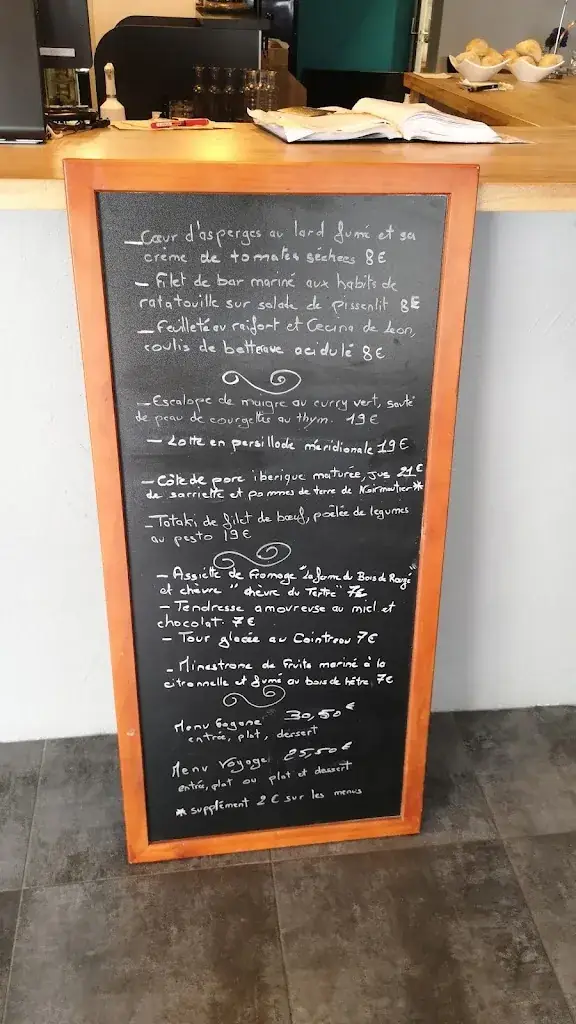 _ Cœur d'asperges au lard fumé et sa
crème de tomates séchées 8€
_ Filet de bar mariné aux habits de
ratatouille sur salade de pissenlit 8€
_ Feuilleté au raifort et Cecina de Leon,
coulis de betterave acidulé 8€
_ Escalope de maigre au curry vert, sauté
de peau de courgettes au thym. 19€
- Lotte en persillade méridionale 19€
- Côte de porc iberique maturée, jus 21€
de sarriette et pommes de terre de Noirmoutier*
_ Tataki de filet de bœuf, poêlée de légumes
au pesto 19€
- Assiette de Fromage "La ferme du Bois de Rangé"
et chèvre "chèvre du Tertre" 7€
- Tendresse amoureuse au miel et
chocolat. 7€
- Tour glacée au Cointreau 7€
_ Minestrone de Fruits mariné à la
citronnelle et fumé au bois de hêtre 7€
Menu 30,50€
entrée, plat, dessert
Menu Voyage 25,50€
entrée, plat ou plat et dessert
* supplément 2€ sur les menus